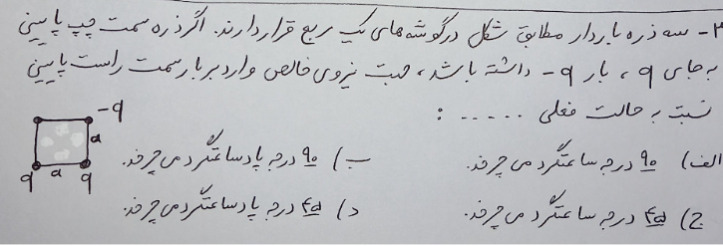 ۳- سه ذره باردار مطابق شکل در گوشه های یک مربع قرار دارند. اگر ذره سمت چپ پایینی
به جای q ، بار q- داشته باشد، جهت نیروی خالص وارد بر بار سمت راست پایینی
نسبت به حالت فعلی ..... :
الف) ۹۰ درجه ساعتگرد می چرخد.
ب) ۹۰ درجه پادساعتگرد می چرخد.
ج) ۴۵ درجه ساعتگرد می چرخد.
د) ۴۵ درجه پادساعتگرد می چرخد.
-q
a
q a q